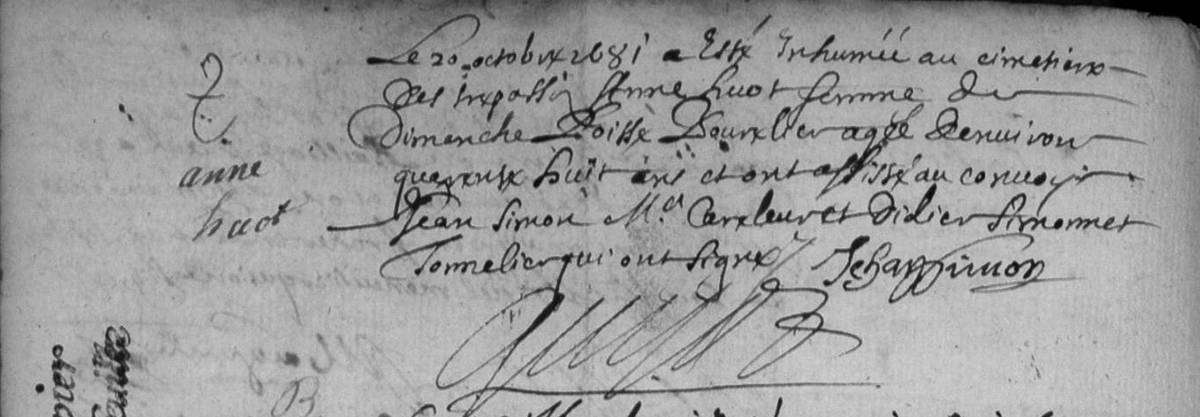 Le 20 octobre 1681 a Esté Inhumée au cimetiere
Des trepasséz Anne huot femme de
Dimanche Loisse Bourelier agéé Denuiron
anne
quarente huit ans et ont assisté au conuoy
huot
Jean Simon Me Cercleur et Didier Simonnet
Tonnelier qui ont signé Jehan Simon